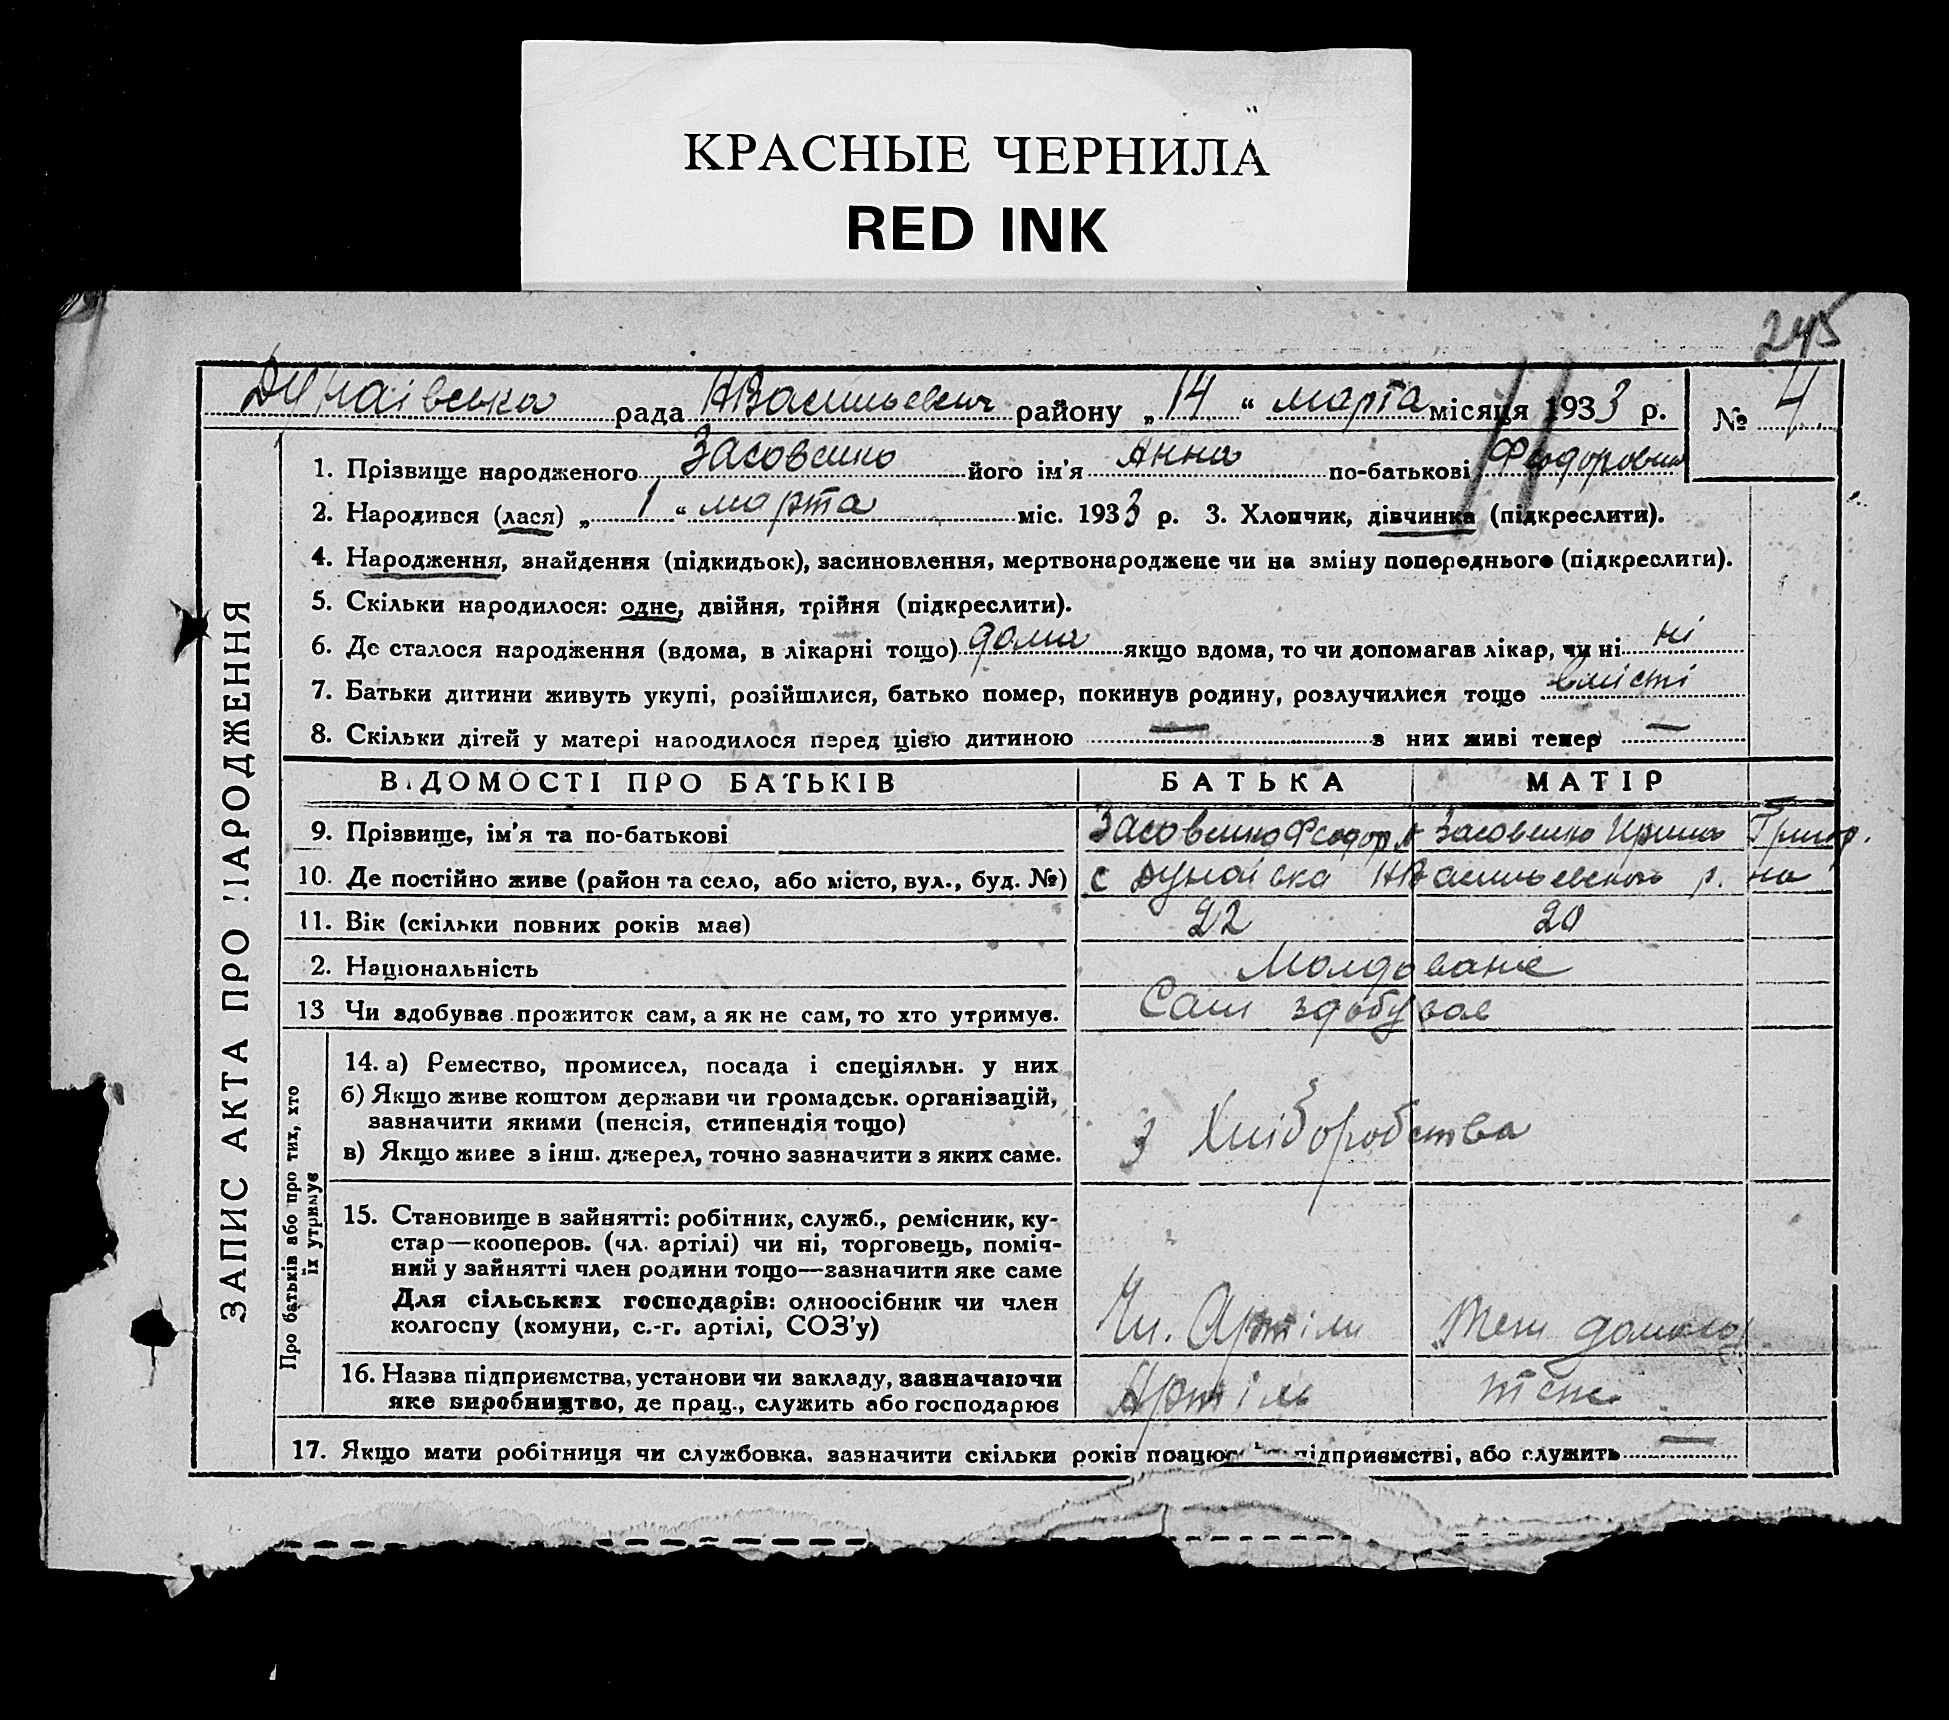 КРАСНЫЕ ЧЕРНИЛА
RED INK
245
Дунаівська рада НВасильевск району „ 14 “ марта місяця 1933 р. № 4
ЗАПИС АКТА ПРО НАРОДЖЕННЯ
1. Прізвище народженого Засовенко його ім'я Анна по-батькові Феодоровна
2. Народився (лася) „ 1 “ марта міс. 1933 р. 3. Хлопчик, дівчинка (підкреслити).
4. Народження, знайдення (підкидьок), засиновлення, мертвонароджене чи на зміну попереднього (підкреслити).
5. Скільки народилося: одне, двійня, трійня (підкреслити).
6. Де сталося народження (вдома, в лікарні тощо) дома якщо вдома, то чи допомагав лікар, чи ні ні
7. Батьки дитини живуть укупі, розійшлися, батько помер, покинув родину, розлучилися тощо вмісті
8. Скільки дітей у матері народилося перед цією дитиною — з них живі тепер —
ВІДОМОСТІ ПРО БАТЬКІВ БАТЬКА МАТІР
9. Прізвище, ім'я та по-батькові Засовенко Феодор А Засовенко Ирина Григор.
10. Де постійно живе (район та село, або місто, вул., буд. №) с Дунаівка НВасильевского р. на
11. Вік (скільки повних років має) 22 20
2. Національність Молдоване
13 Чи здобуває прожиток сам, а як не сам, то хто утримує. Сам здобуває
Про батьків або про тих, хто
їх утримує
14. а) Ремество, промисел, посада і спеціяльн. у них
б) Якщо живе коштом держави чи громадськ. організацій,
зазначити якими (пенсія, стипендія тощо)
в) Якщо живе з інш. джерел, точно зазначити з яких саме.
з Хліборобства
15. Становище в зайнятті: робітник, служб., ремісник, ку-
стар—кооперов. (чл. артілі) чи ні, торговець, поміч-
ний у зайнятті член родини тощо—зазначити яке саме
Для сільських господарів: одноосібник чи член
колгоспу (комуни, с.-г. артілі, СОЗ'у)
Чл. Артіли
16. Назва підприємства, установи чи закладу, зазначаючи
яке виробництво, де прац., служить або господарює
Артіль
17. Якщо мати робітниця чи службовка, зазначити скільки років працює підприємстві, або служить —